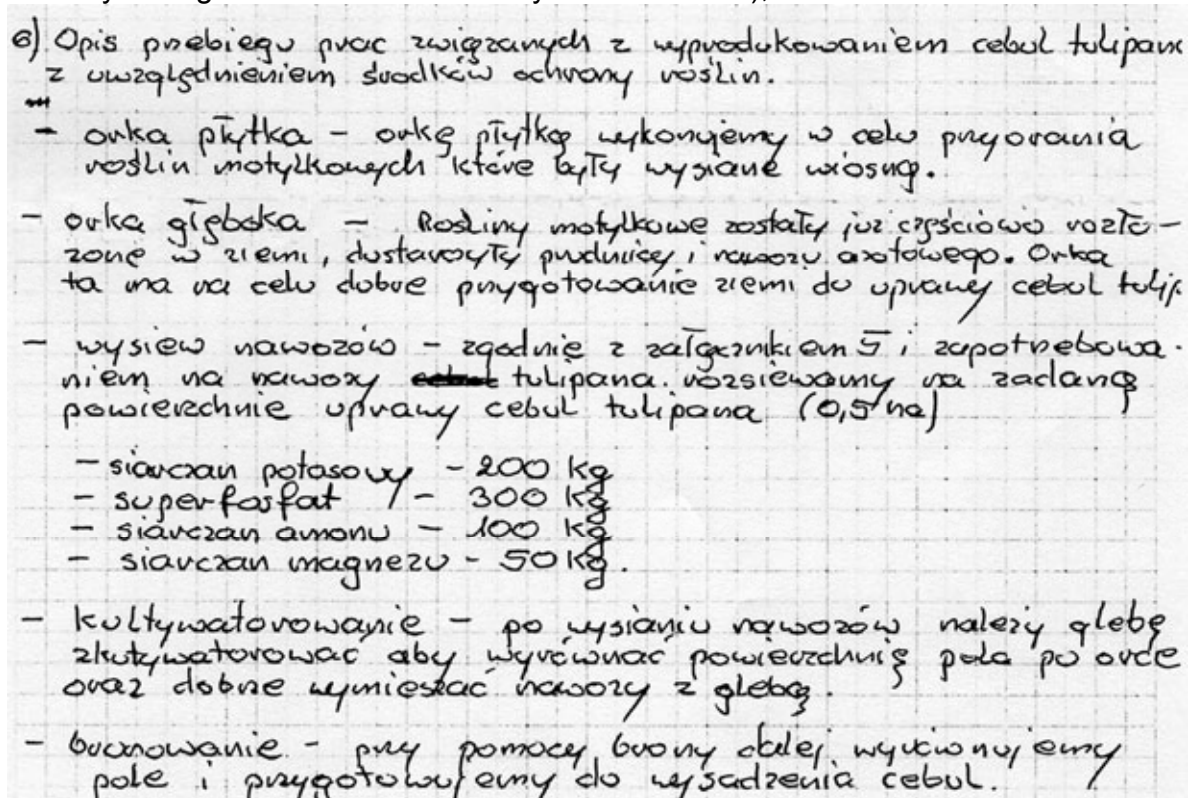 6) Opis przebiegu prac związanych z wyprodukowaniem cebul tulipana
z uwzględnieniem środków ochrony roślin.
- orka płytka - orkę płytką wykonujemy w celu przyorania
roślin motylkowych które były wysiane wiosną.
- orka głęboka - Rośliny motylkowe zostały już częściowo rozło-
żone w ziemi, dostarczyły próchnicy i nawozu azotowego. Orka
ta ma na celu dobre przygotowanie ziemi do uprawy cebul tulip.
- wysiew nawozów - zgodnie z załącznikiem 5 i zapotrzebowa-
niem na nawozy tulipana. rozsiewamy na zadaną
powierzchnie uprawy cebul tulipana (0,5 ha)
- siarczan potasowy - 200 kg
- superfosfat - 300 kg
- siarczan amonu - 100 kg
- siarczan magnezu - 50 kg.
- kultywatorowanie - po wysianiu nawozów należy glebę
zkutywatorować aby wyrównać powierzchnię pola po orce
oraz dobrze wymieszać nawozy z glebą.
- bronowanie - przy pomocy brony dalej wyrównujemy
pole i przygotowujemy do wysadzenia cebul.